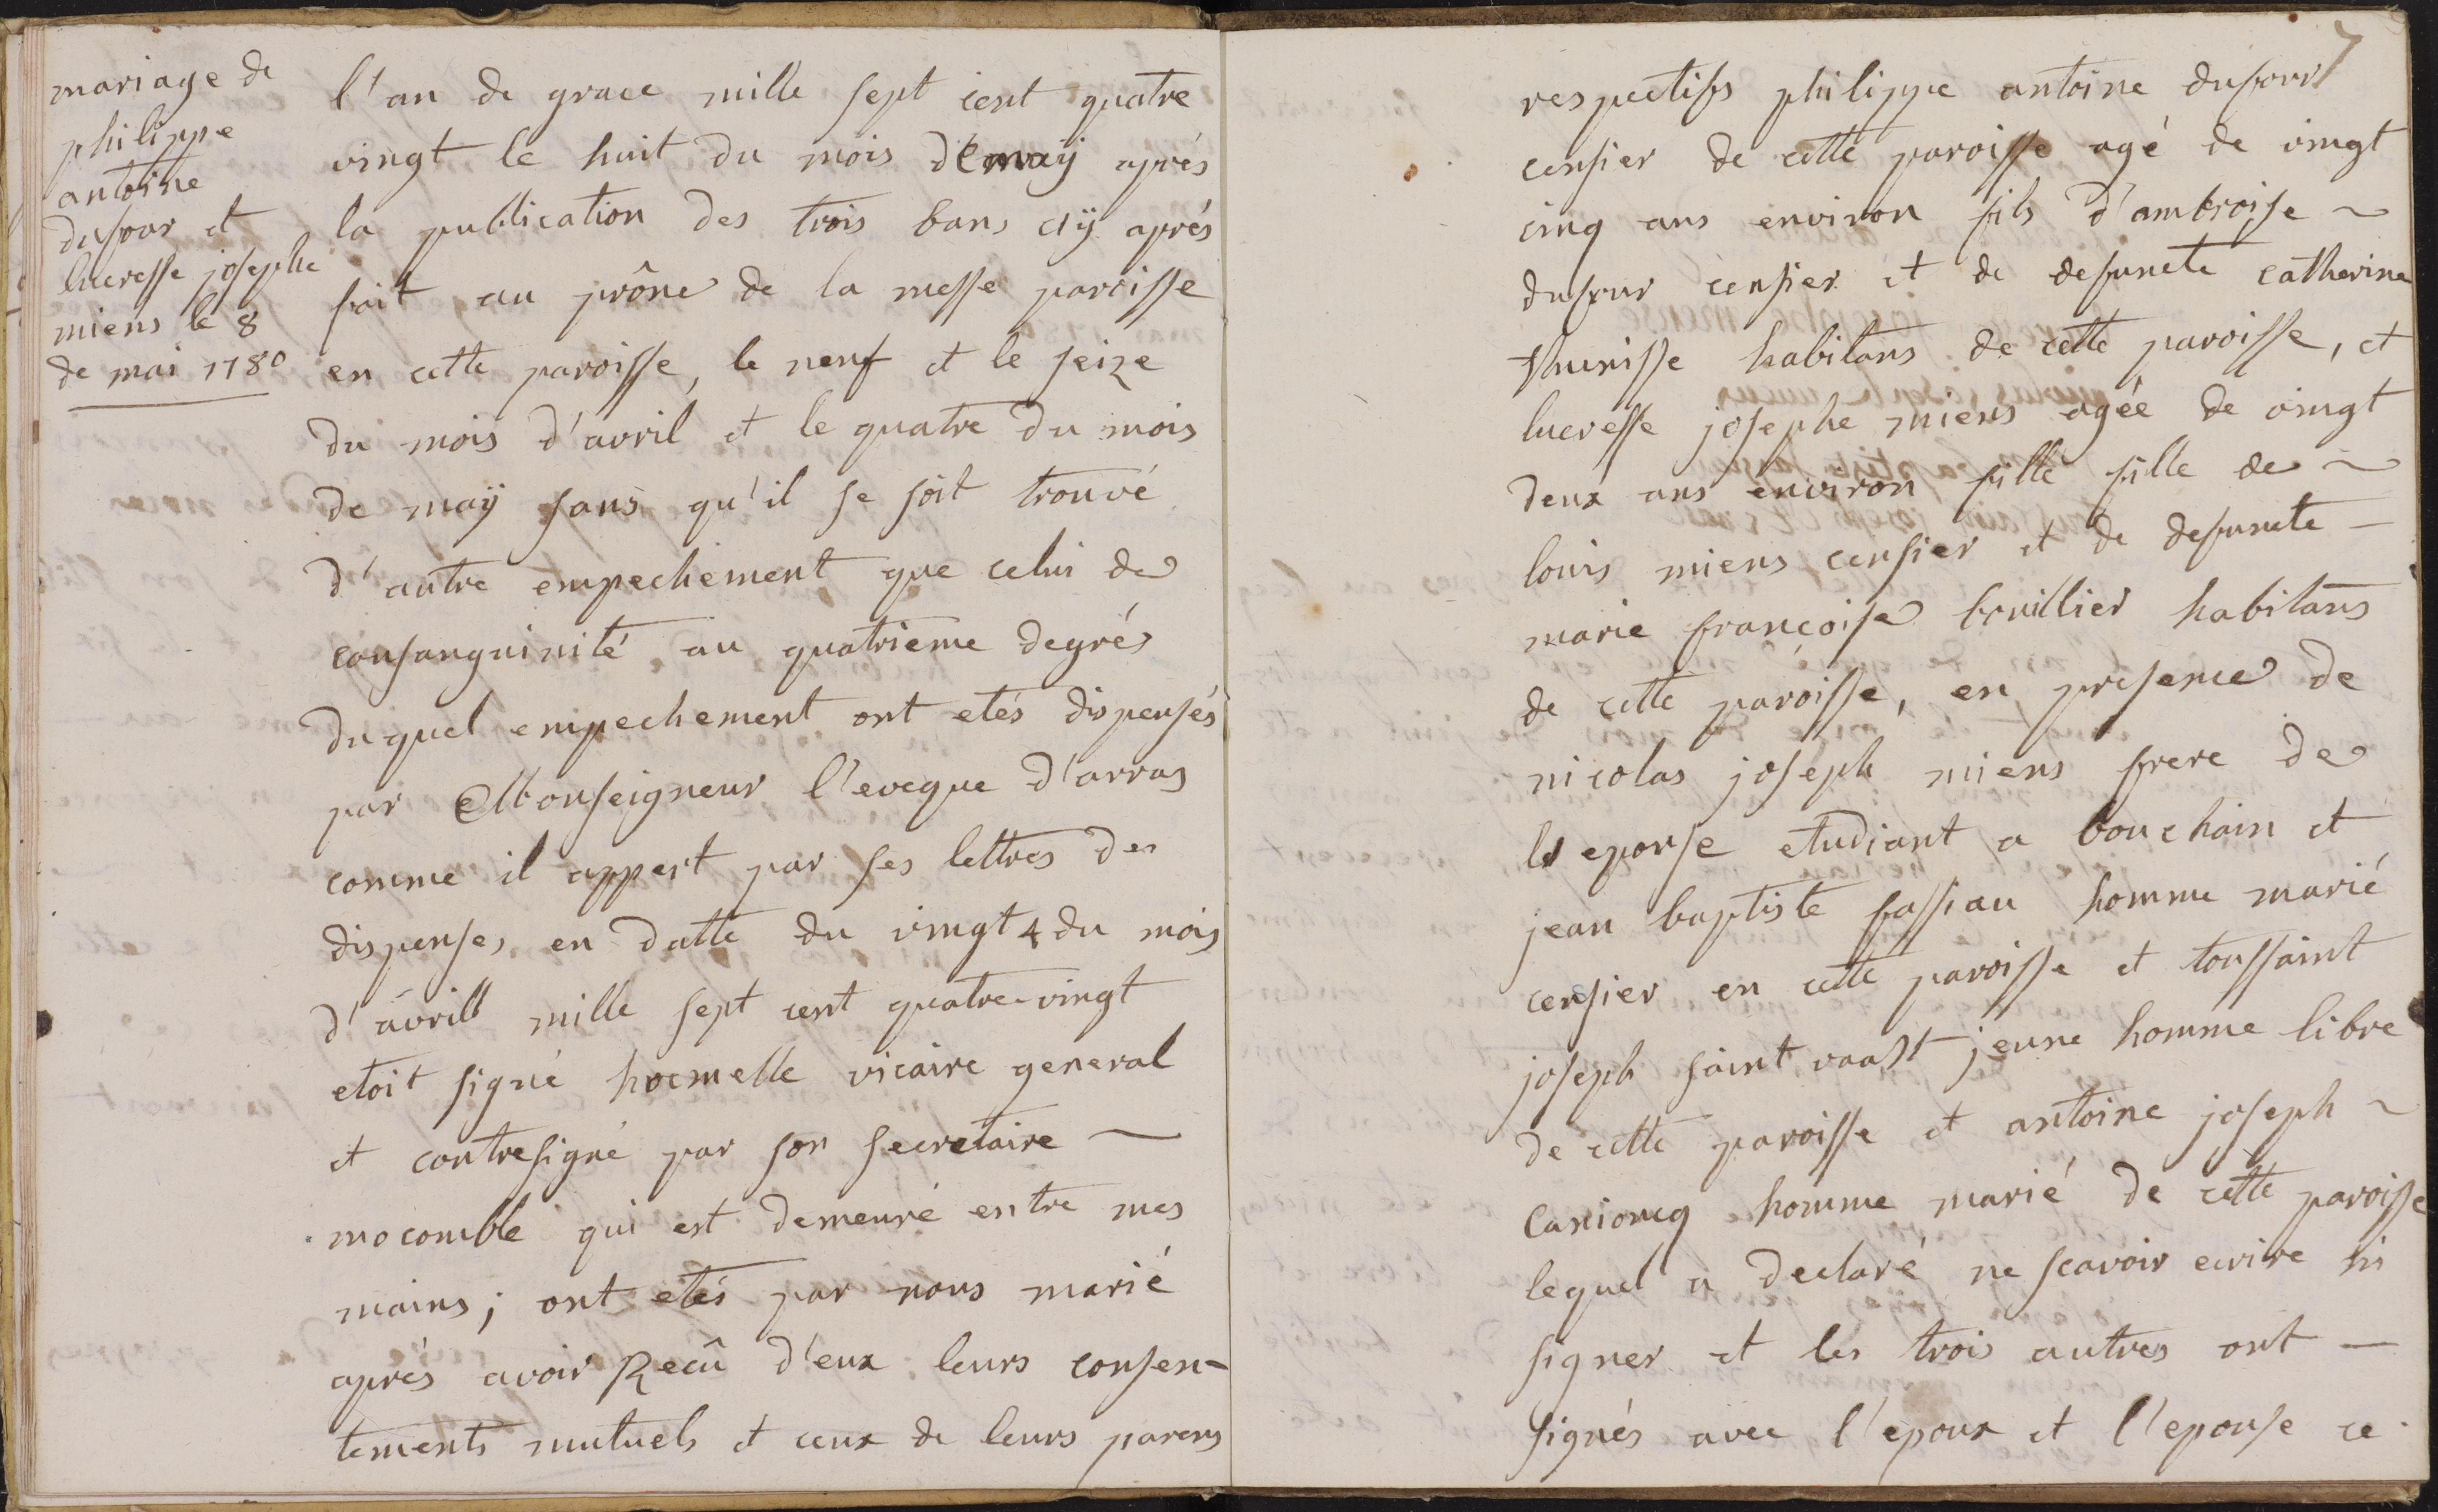 mariage de
philippe
antoine
dufour et
lucresse josephe
miens le 8
de mai 1780
l'an de grace mille sept cent quatre
vingt le huit du mois de maÿ aprés
la publication des trois bans cÿ aprés
fait au prône de la messe paroisse
en cette paroisse, le neuf et le seize
du mois d'avril et le quatre du mois
de maÿ sans qu'il se soit trouvé
d'autre empechement que celui de
consanguinité au quatrieme degrés
duquel empechement ont etés dispensés
par Monseigneur l'eveque d'arras
comme il appert par ses lettres de
dispenses en datte du vingt 4 du mois
d'avrill mille sept cent quatre-vingt
etoit signé hocmelle vicaire general
et contresigné par son secretaire ~
mocomble qui est demeuré entre mes
mains; ont etés par nous marié
aprés avoir Recû d'eux leurs consen-
tements mutuels et ceux de leurs parens
7
respectifs philippe antoine dufour
censier de cette paroisse agé de vingt
cinq ans environ fils d'ambroise ~
dufour censier et de defuncte catherine
habitans de cette paroisse, et
lucresse josephe miens agée de vingt
deux ans environ fille fille de ~
louis miens censier et de defuncte —
marie françoise bouillier habitans
de cette paroisse, en presence de
nicolas joseph miens frere de
l'epouse etudiant a bouchain et
jean baptiste fassiau homme marié
censier en cette paroisse et toussaint
joseph saint vaast jeune homme libre
de cette paroisse et antoine joseph ~
Canioncq homme marié de cette paroisse
lequel a declaré ne scavoir ecrire ni
signer et les trois autres ont —
signés avec l'epoux et l'epouse ce